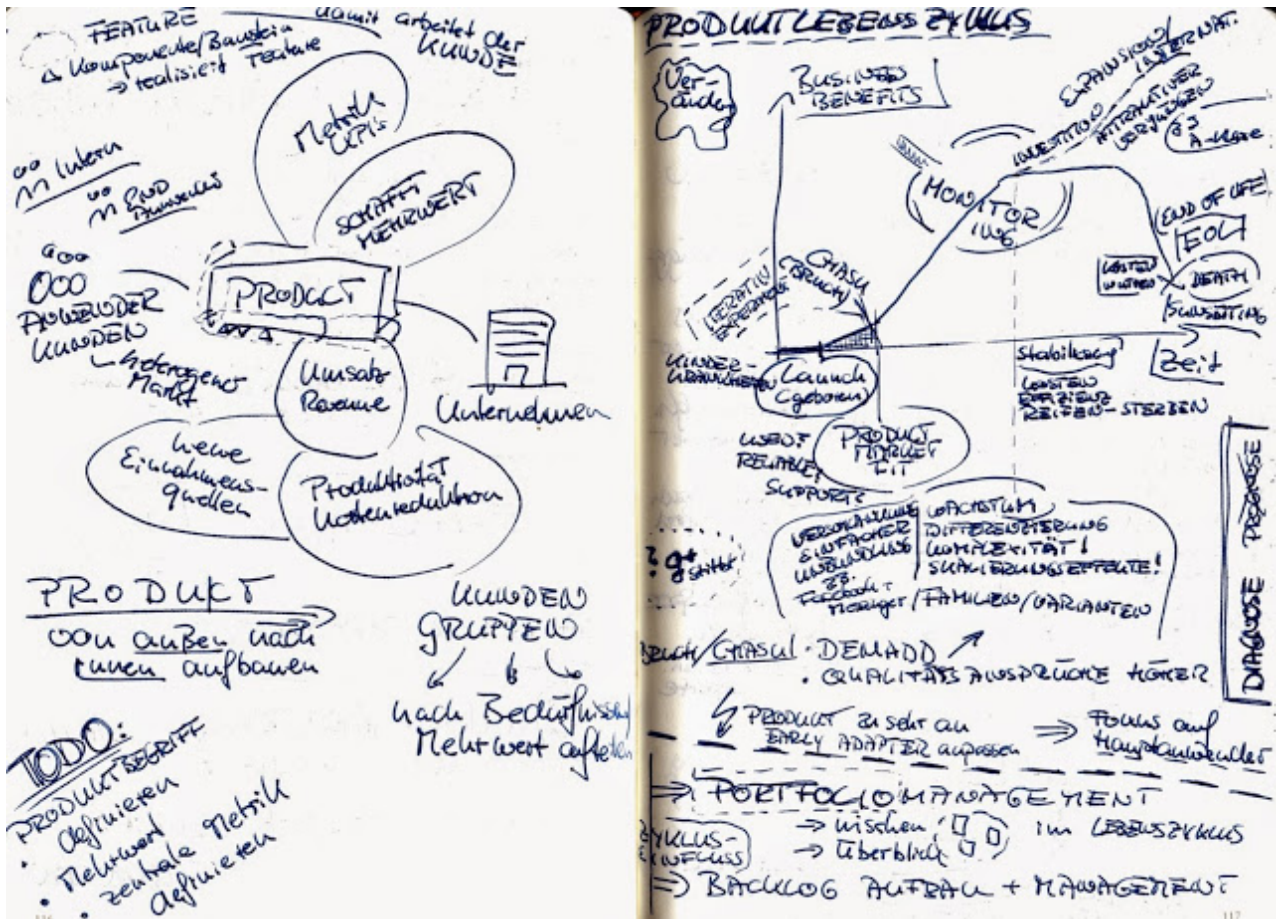 FEATURE
△ Komponente/Baustein
→ realisiert Feature
damit arbeitet der
KUNDE
Metrik
KPI's
SCHAFFT
MEHRWERT
Intern
END
PRODUKT
ANWENDER
KUNDEN
heterogener
Markt
Umsatz
Revenue
Unternehmen
neue
Einnahmens-
quellen
Produktivität
Kostenreduktion
PRODUKT
von außen nach
innen aufbauen
KUNDEN
GRUPPEN
nach Bedürfnissen/
Mehrwert aufteilen
TODO:
PRODUKTBEGRIFF
definieren
• Mehrwert
• zentrale Metrik
definieren
PRODUKTLEBENSZYKLUS
Ver-
ändern
BUSINESS
BENEFITS
EXPANSION/
INTERNAT.
INVESTITION
ATTRAKTIVER
VERJÜNGEN
A-Klasse
MONITOR
ING
(END OF LIFE)
EOL
KOSTEN
NUTZEN
DEATH
SUNSETTING
ITERATIV
EXPERIMENT
CHASM
(BRUCH)
KINDER-
KRANKHEITEN
Launch
(geboren)
Stabilisierung
Zeit
KOSTEN
EFFIZIENZ
REIFEN-STERBEN
PRODUCT
MARKET
FIT
RELIABLE
SUPPORT
EINFACHER
ZB.
Facebook +
WACHSTUM
DIFFERENZIERUNG
KOMPLEXITÄT!
SKALIERUNGSEFFEKTE!
/FAMILIEN/VARIANTEN
? g+
stirbt
DIAGNOSE PROGNOSE
BRUCH/CHASM • DEMAND ↗
• QUALITÄTSANSPRÜCHE HÖHER
PRODUKT zu sehr an
EARLY ADAPTER anpassen
⇒ Fokus auf
Hauptanwender
⇒ PORTFOLIOMANAGEMENT
ZYKLUS-
EINFLUSS
→ nischen
→ Überblick
im LEBENSZYKLUS
⇒ BACKLOG AUFBAU + MANAGEMENT
117